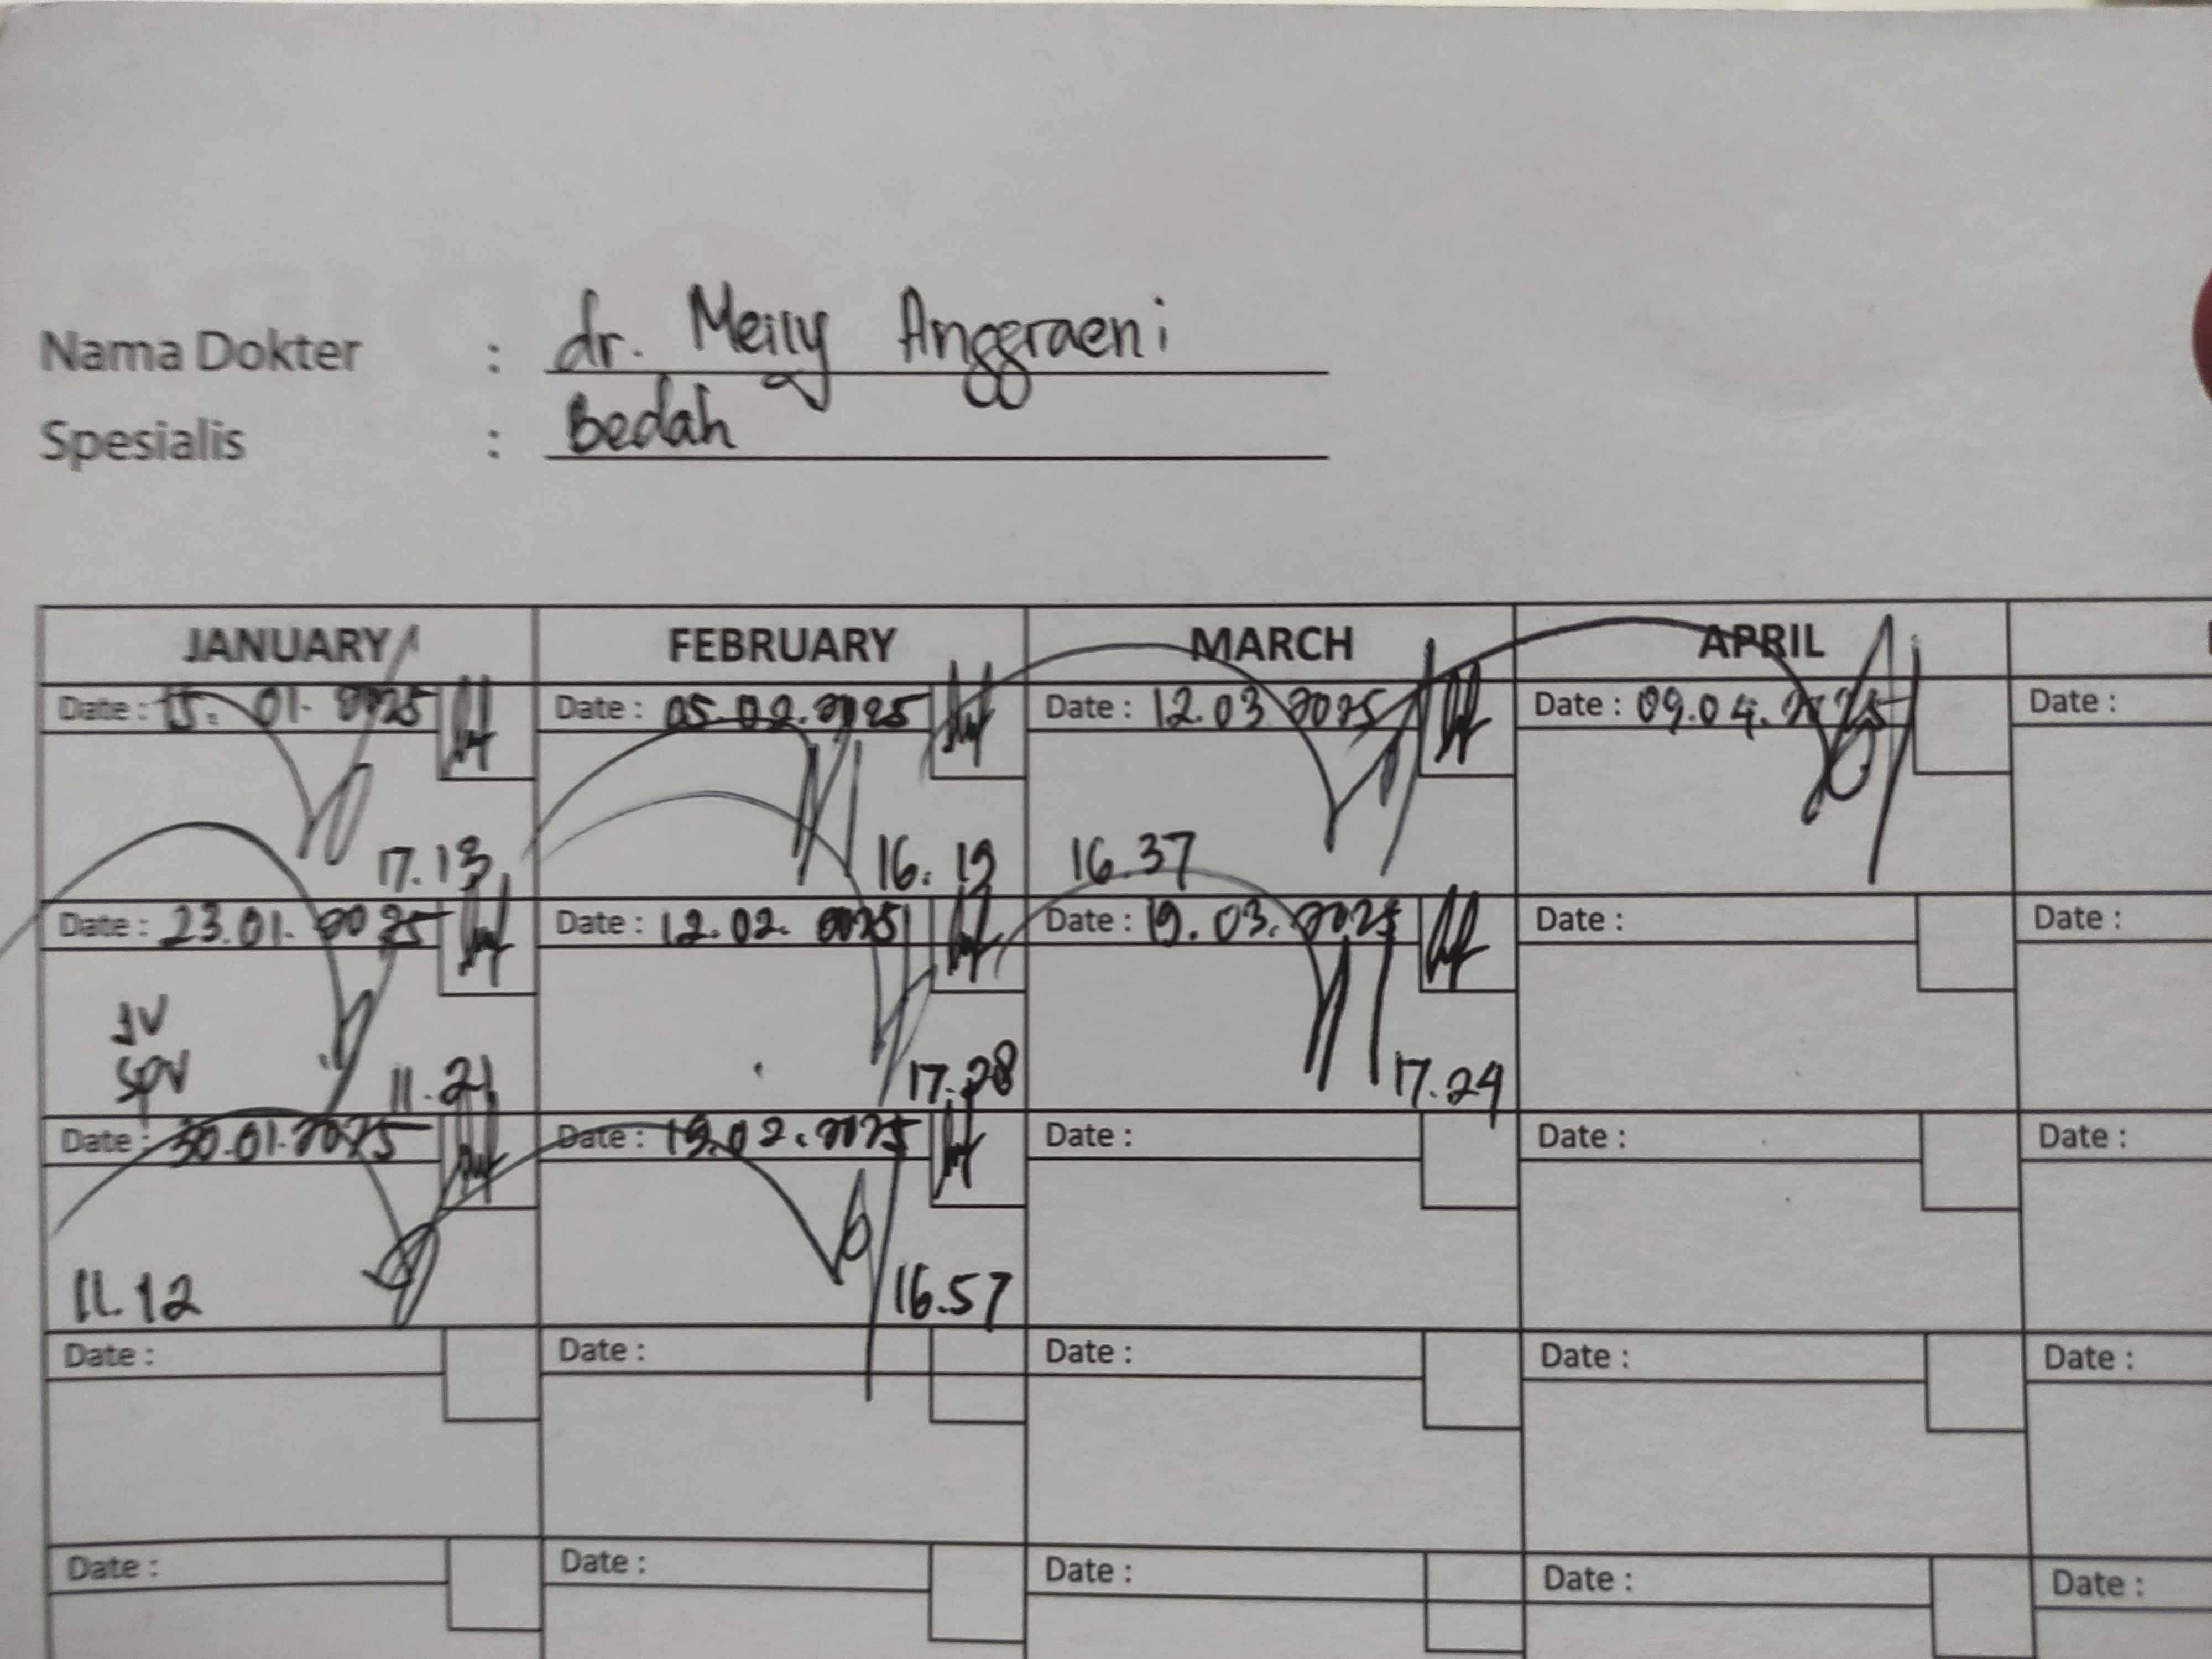 Nama Dokter : dr. Meilly Anggraeni
Spesialis : Bedah
JANUARY FEBRUARY MARCH APRIL
Date : 15. 01. 2025 Date : 05.02.2025 Date : 12.03 2025 Date : 09.04.2025 Date :
17.13 16.19 16.37
Date : 23.01. 2025 Date : 12.02. 2025 Date : 19.03.2025 Date : Date :
JV
SPV
11.21 17.28 17.24
Date : 30.01.2025 Date : 19.02.2025 Date : Date : Date :
11.12 16.57
Date : Date : Date : Date : Date :
Date : Date : Date : Date : Date :